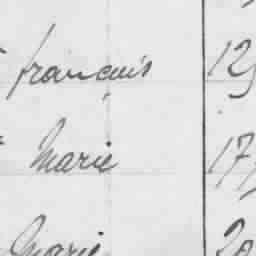 français 12
Marie 17
Marie 20